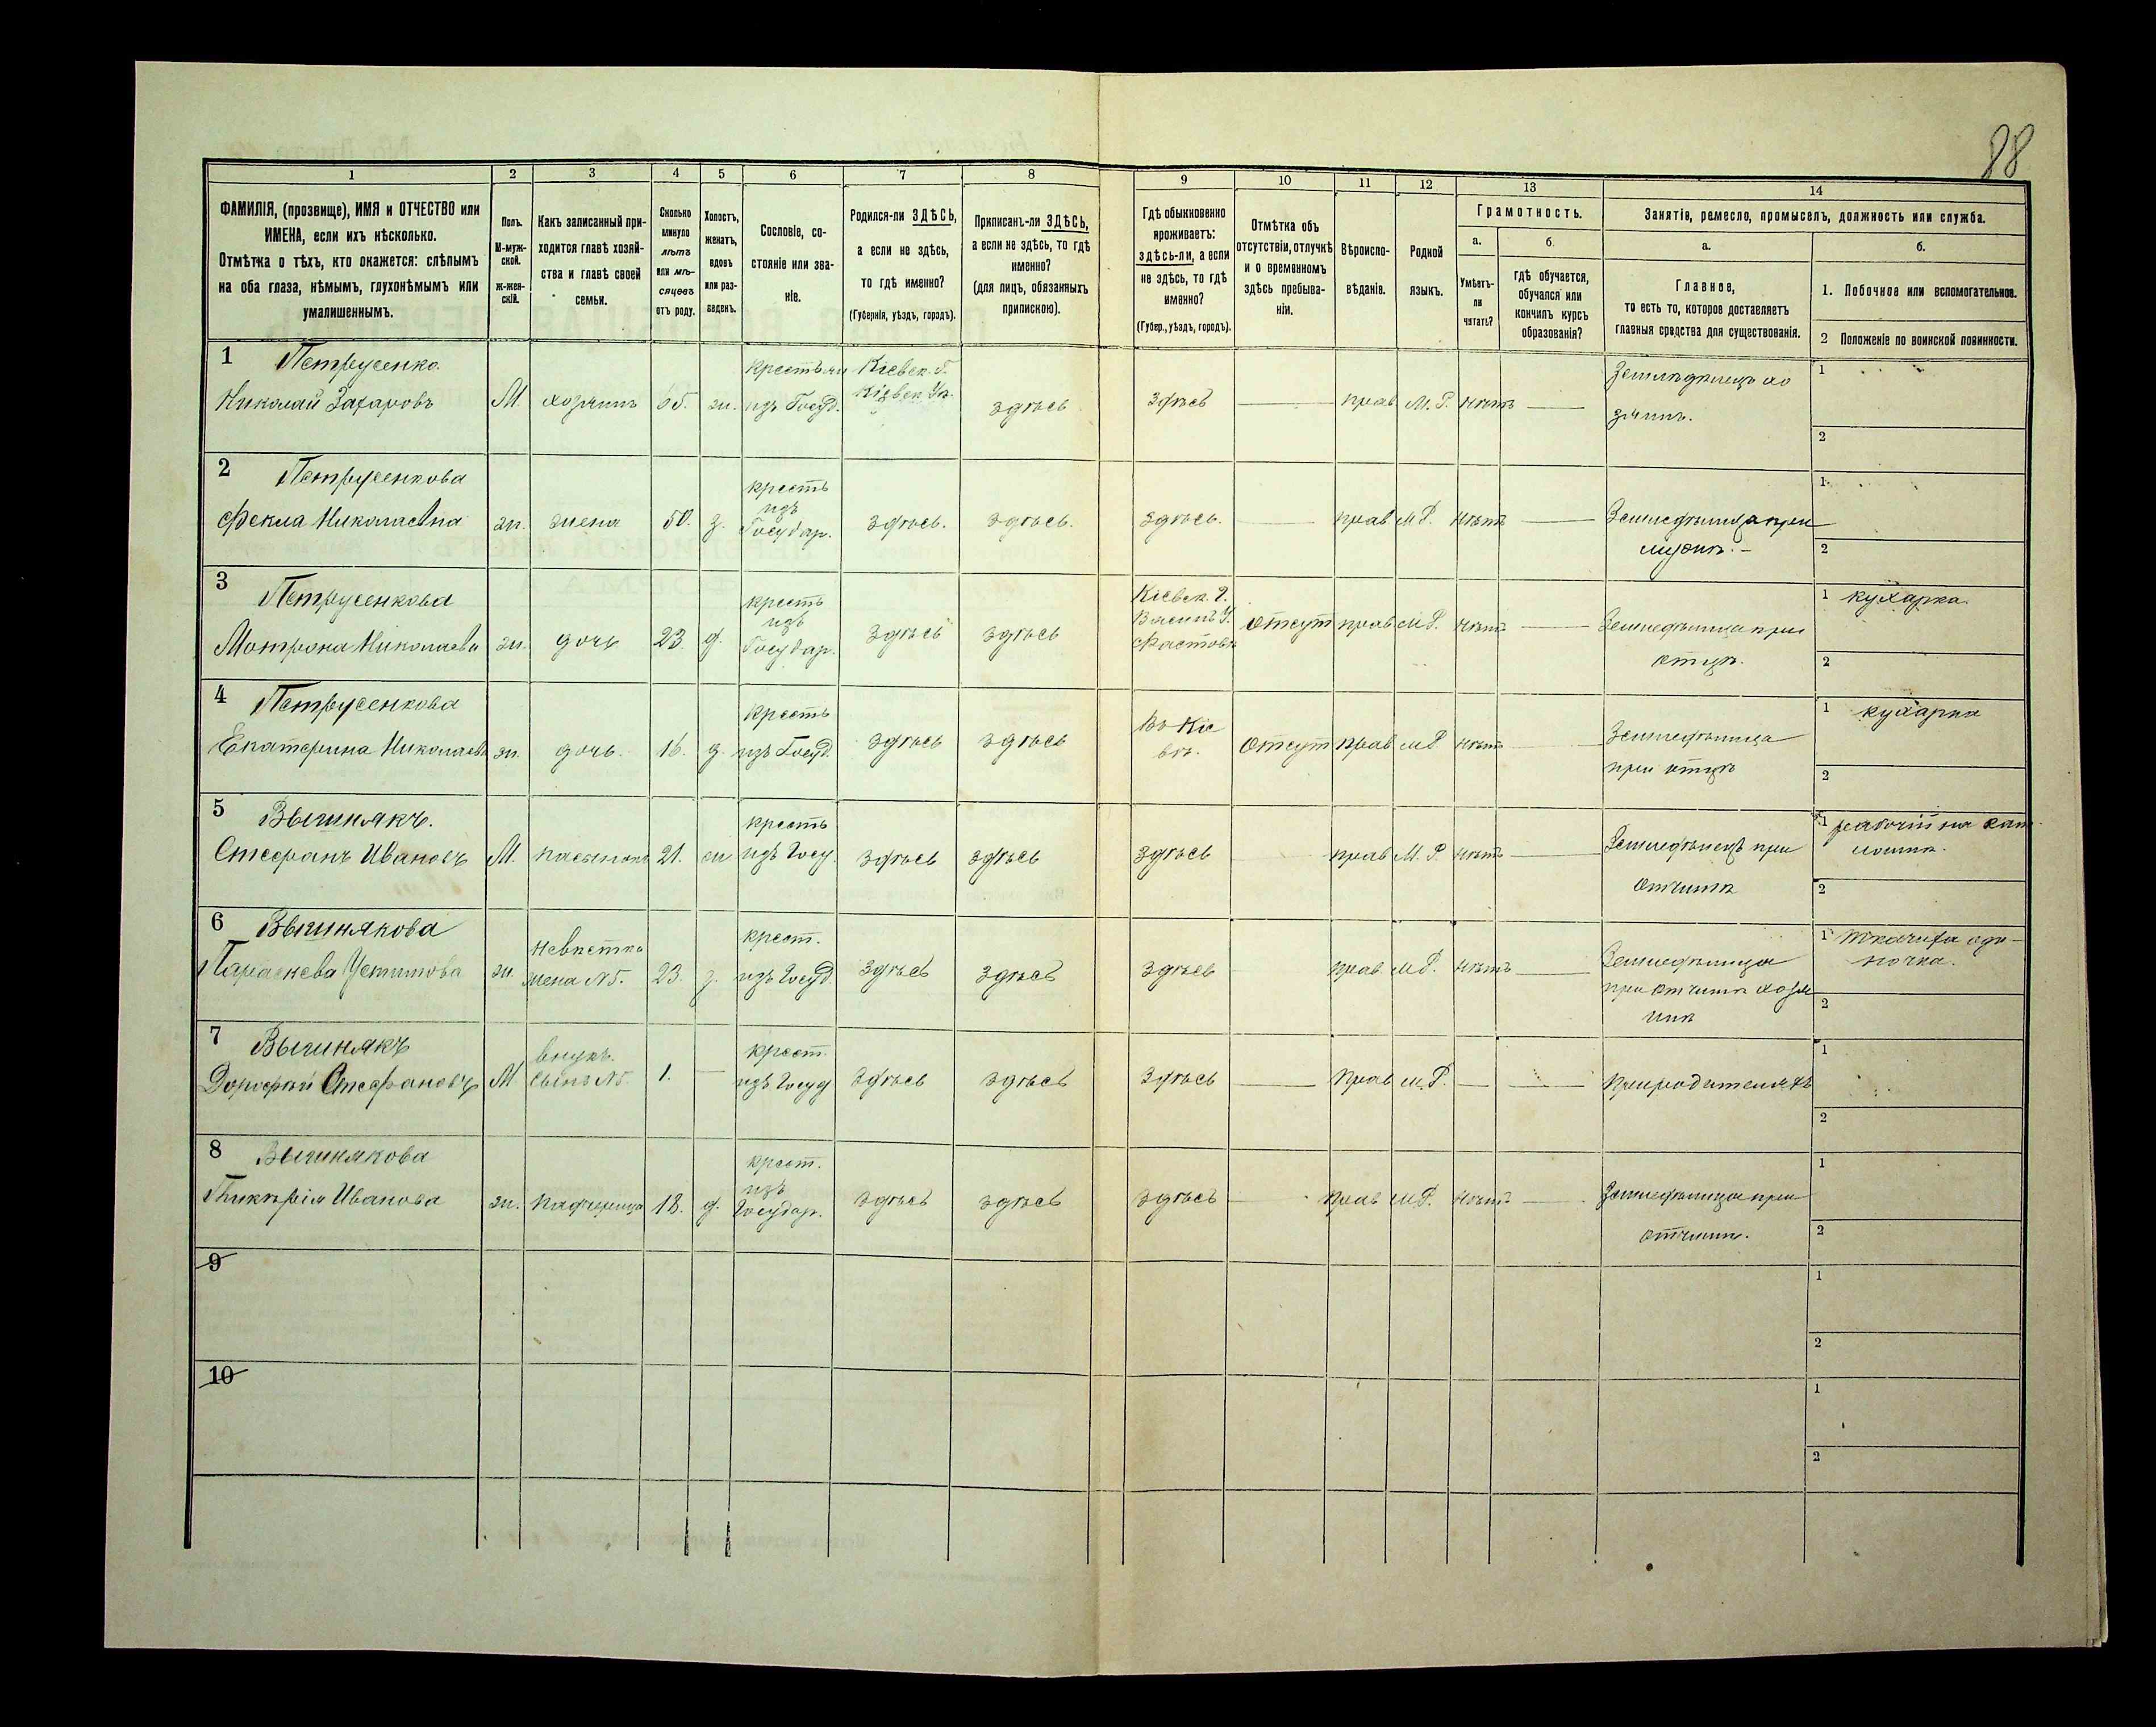 88
1
2
3
4
5
6
7
8
9
10
11
12
13
14
ФАМИЛІЯ, (прозвище), ИМЯ и ОТЧЕСТВО или
ИМЕНА, если ихъ нѣсколько.
Отмѣтка о тѣхъ, кто окажется: слѣпымъ
на оба глаза, нѣмымъ, глухонѣмымъ или
умалишеннымъ.
Полъ.
М-муж-
ской.
ж-жен-
скій.
Какъ записанный при-
ходится главѣ хозяй-
ства и главѣ своей
семьи.
Сколько
минуло
лѣтъ
или мѣ-
сяцевъ
отъ роду.
Холостъ,
женатъ,
вдовъ
или раз-
веденъ.
Сословіе, со-
стояніе или зва-
ніе.
Родился-ли ЗДѢСЬ,
а если не здѣсь,
то гдѣ именно?
(Губернія, уѣздъ, городъ).
Приписанъ-ли ЗДѢСЬ,
а если не здѣсь, то гдѣ
именно?
(для лицъ, обязанныхъ
припискою).
Гдѣ обыкновенно
проживаетъ:
здѣсь-ли, а если
не здѣсь, то гдѣ
именно?
(Губер., уѣздъ, городъ).
Отмѣтка объ
отсутствіи, отлучкѣ
и о временномъ
здѣсь пребыва-
ніи.
Вѣроиспо-
вѣданіе.
Родной
языкъ.
Грамотность.
а.
Умѣетъ-
ли
читать?
б.
гдѣ обучается,
обучался или
кончилъ курсъ
образованія?
Занятіе, ремесло, промыселъ, должность или служба.
а.
Главное,
то есть то, которое доставляетъ
главныя средства для существованія.
б.
1. Побочное или вспомогательное.
2 Положеніе по воинской повинности.
1 Петрусенко
Николай Захаровъ
М.
хозяинъ
65.
ж.
крестьян
изъ Госуд.
Кіевск. Г.
Кіевск. Уѣ.
здѣсь
здѣсь
прав
М. Р.
нѣтъ
Земледѣлецъ хо
зяинъ.
1
2
2 Петрусенкова
Фекла Николаевна
ж.
жена
50.
з.
кресть
изъ
Государ.
здѣсь.
здѣсь.
здѣсь.
прав
М Р.
нѣтъ
Земледѣлица при
мужѣ.
1
2
3 Петрусенкова
Мотрона Николаева
ж.
дочь
23.
д.
кресть
изъ
Государ.
здѣсь
здѣсь
Кіевск. Г.
Василь У.
Фастовъ
отсут
прав
М Р.
нѣтъ
Земледѣлица при
отцѣ.
1 кухарка.
2
4 Петрусенкова
Екатерина Николаева
ж.
дочь.
16.
д.
кресть
изъ Госуд.
здѣсь
здѣсь
Въ Кіе
вѣ.
отсут
прав
М Р
нѣтъ
Земледѣлица
при отцѣ
1 кухарка
2
5 Вышнякъ.
Стефанъ Ивановъ
М.
пасынокъ
21.
ж
кресть
изъ Госу.
здѣсь
здѣсь
здѣсь
прав
М. Р.
нѣтъ
Земледѣлецъ при
отчимѣ
1 рабочій на
2
6 Вышнякова
Параскева Устимова
ж.
невѣстка
жена №5.
23.
з.
крест.
изъ Госуд.
здѣсь
здѣсь
здѣсь
прав
М Р.
нѣтъ
Земледѣлица
при отчимѣ хозя
инѣ
1 ткачиха оди-
ночка.
2
7 Вышнякъ
Дорофей Стефановъ
М
внукъ.
сынъ №5.
1.
крест.
изъ Госуд
здѣсь
здѣсь
здѣсь
прав
М. Р.
При родителяхъ
1
2
8 Вышнякова
Гликерія Иванова
ж.
падчерица
18.
д.
крест.
изъ
Государ.
здѣсь
здѣсь
здѣсь
прав
М Р.
нѣтъ
Земледѣлица при
отчимѣ.
1
2
9
1
2
10
1
2